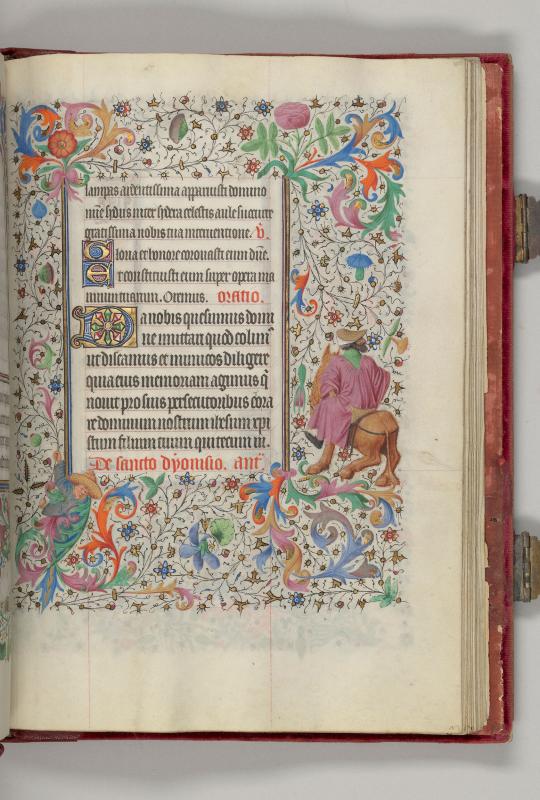 lampas ardentissima apparuisti domino
nr̄e sydus inter sydera celestis aule succurre
gratissima nobis tua interuentione. ℣.
Gloria et honore coronasti eum dn̄e.
Et constituisti eum super opera ma
nuum tuarum. Oremus. oratio.
Da nobis quesumus domi
ne imitari quod colimꝰ
ut discamus et inimicos diligere
quia eius memoriam agimus q̄
nouit pro suis persecutoribus exora
re dominum nostrum ihesum xpi
stum filium tuum qui tecum ui.
De sancto dyonisio. ant̄